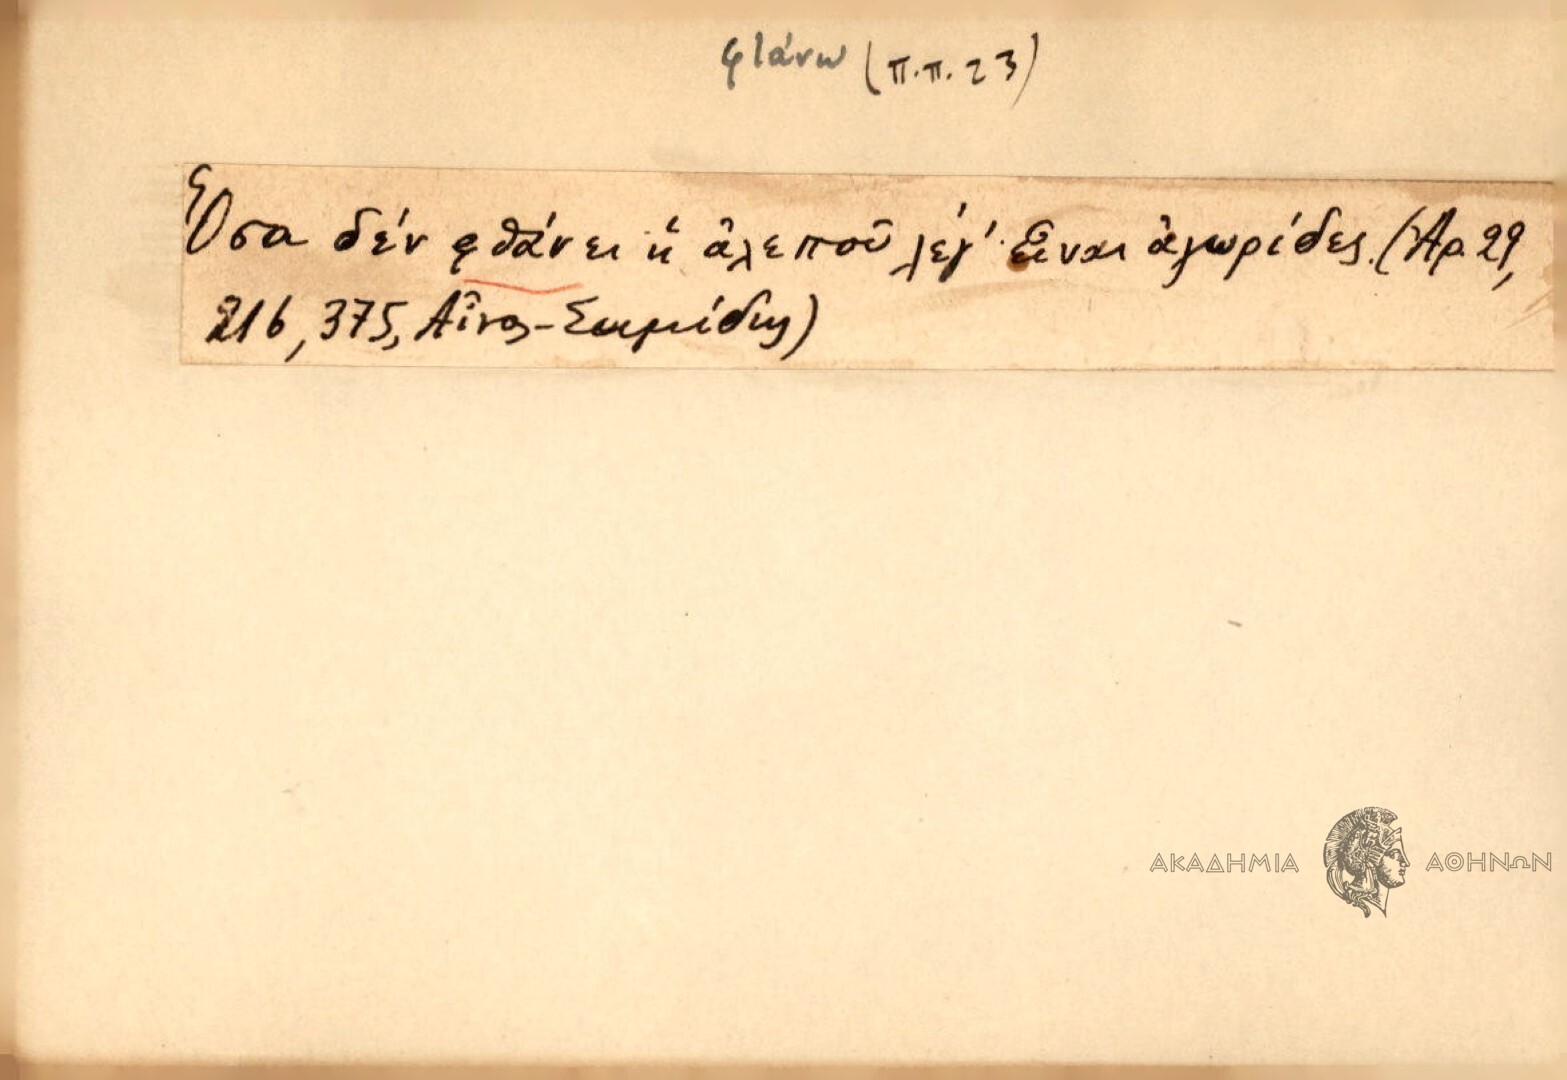 φτάνω (π.π. 23)
Ὅσα δέν φθάνει ἡ ἀλεποῦ λέγ' εἶναι ἀγωρίδες. (Ἀρ. 29,
216, 375, Αἶνος-Σαμίδης)
ΑΚΑΔΗΜΙΑ ΑΘΗΝΩΝ